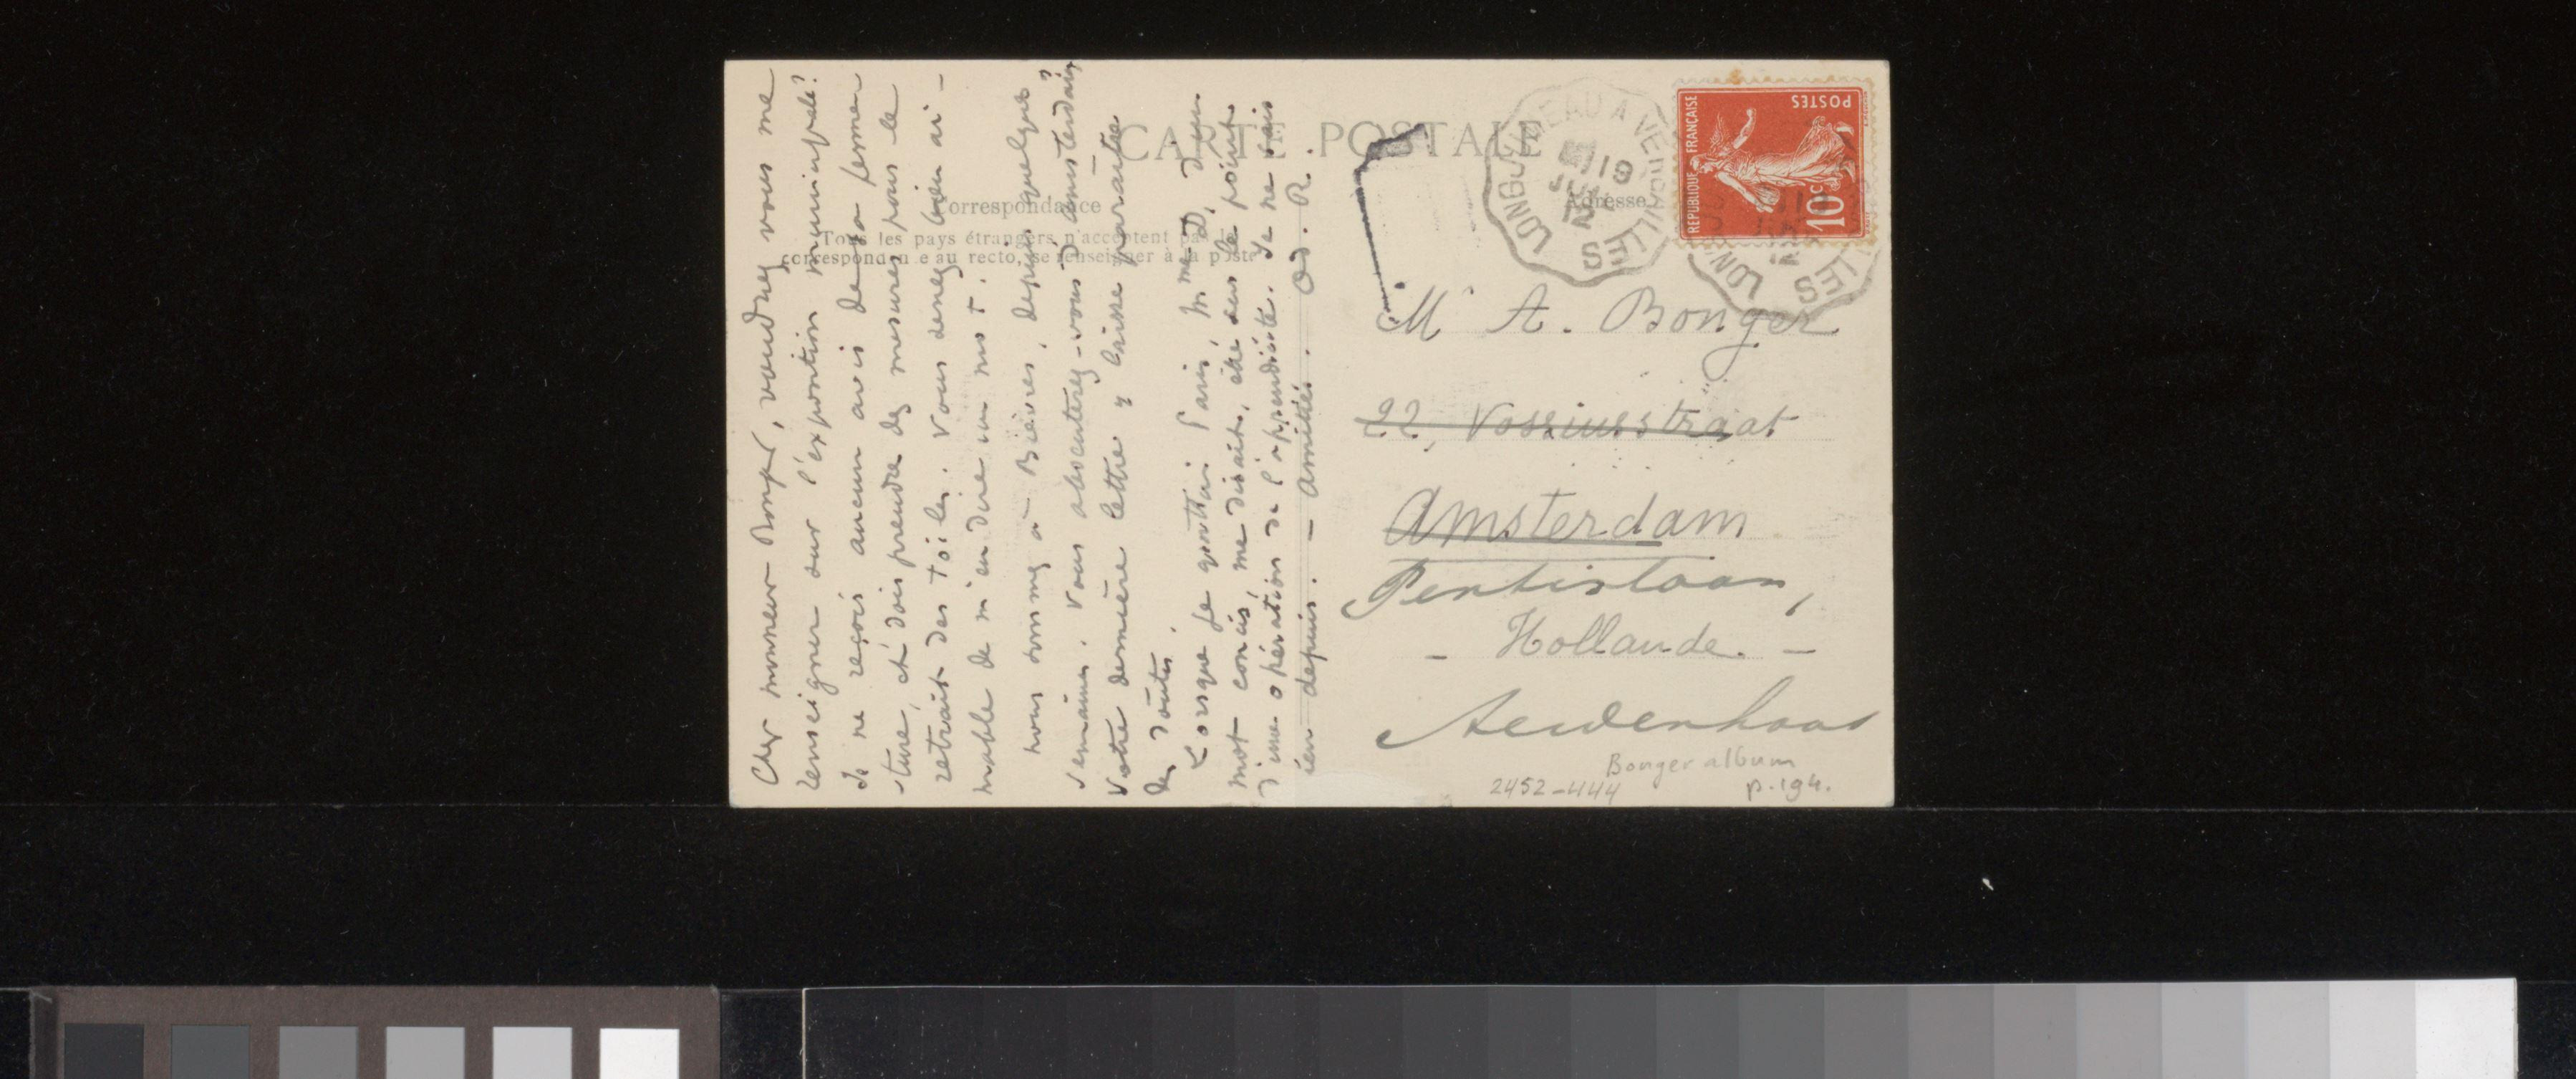 CARTE POSTALE
Correspondance
Tous les pays étrangers n'acceptent pas la
correspondance au recto, se renseigner à la poste
Adresse
Cher monsieur Bonger, voudriez vous me
renseigner sur l'exposition municipale?
Je ne reçois aucun avis de sa ferme-
ture, et dois prendre des mesures pour le
retrait des toiles. Vous seriez bien ai-
mable de m'en dire un mot.
nous sommes à Bièvres, depuis quelques
semaines. Vous absenterez-vous d'amsterdam?
Votre dernière lettre y laisse paraître
des doutes.
Lorsque je quittai Paris, Mme D, d'un
mot concis, me disait, être sur le point
d'une opération de l'appendicite. Je ne sais
rien depuis. - amitiés. Od. R.
M A. Bonger
22, Vossiusstraat
Amsterdam
- Hollande. -
Aerdenhout
Bonger album
2452-444
p. 194.
REPUBLIQUE FRANÇAISE
POSTES
10c
LONGJUMEAU A VERSAILLES
19
12